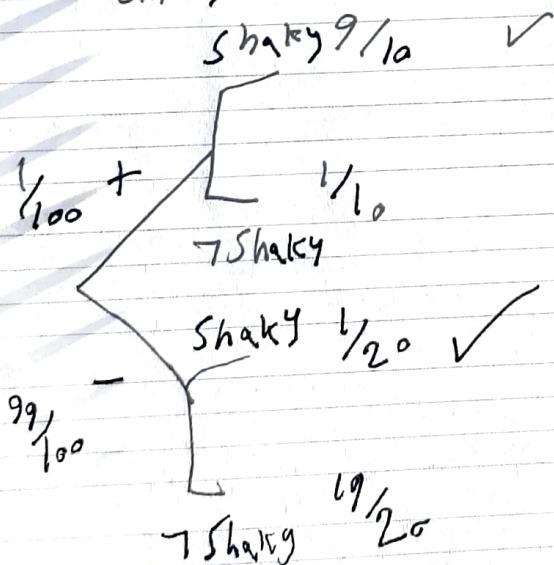 Shaky 9/10 ✓
1/100 +
1/10
¬Shaky
Shaky 1/20 ✓
99/100 −
19/20
¬Shaky